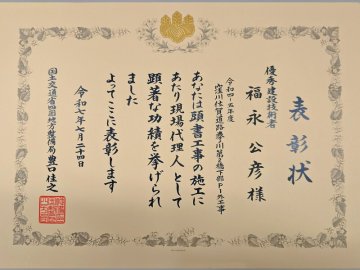 表彰状
優秀建設技術者
福永公彦様
令和四-五年度
窪川佐賀道路
橋下部P1外工事
あなたは頭書工事の施工に
あたり現場代理人として
顕著な功績を挙げられ
ました
よってここに表彰します
令和七年七月二十四日
国土交通省四国地方整備局長豊口佳之